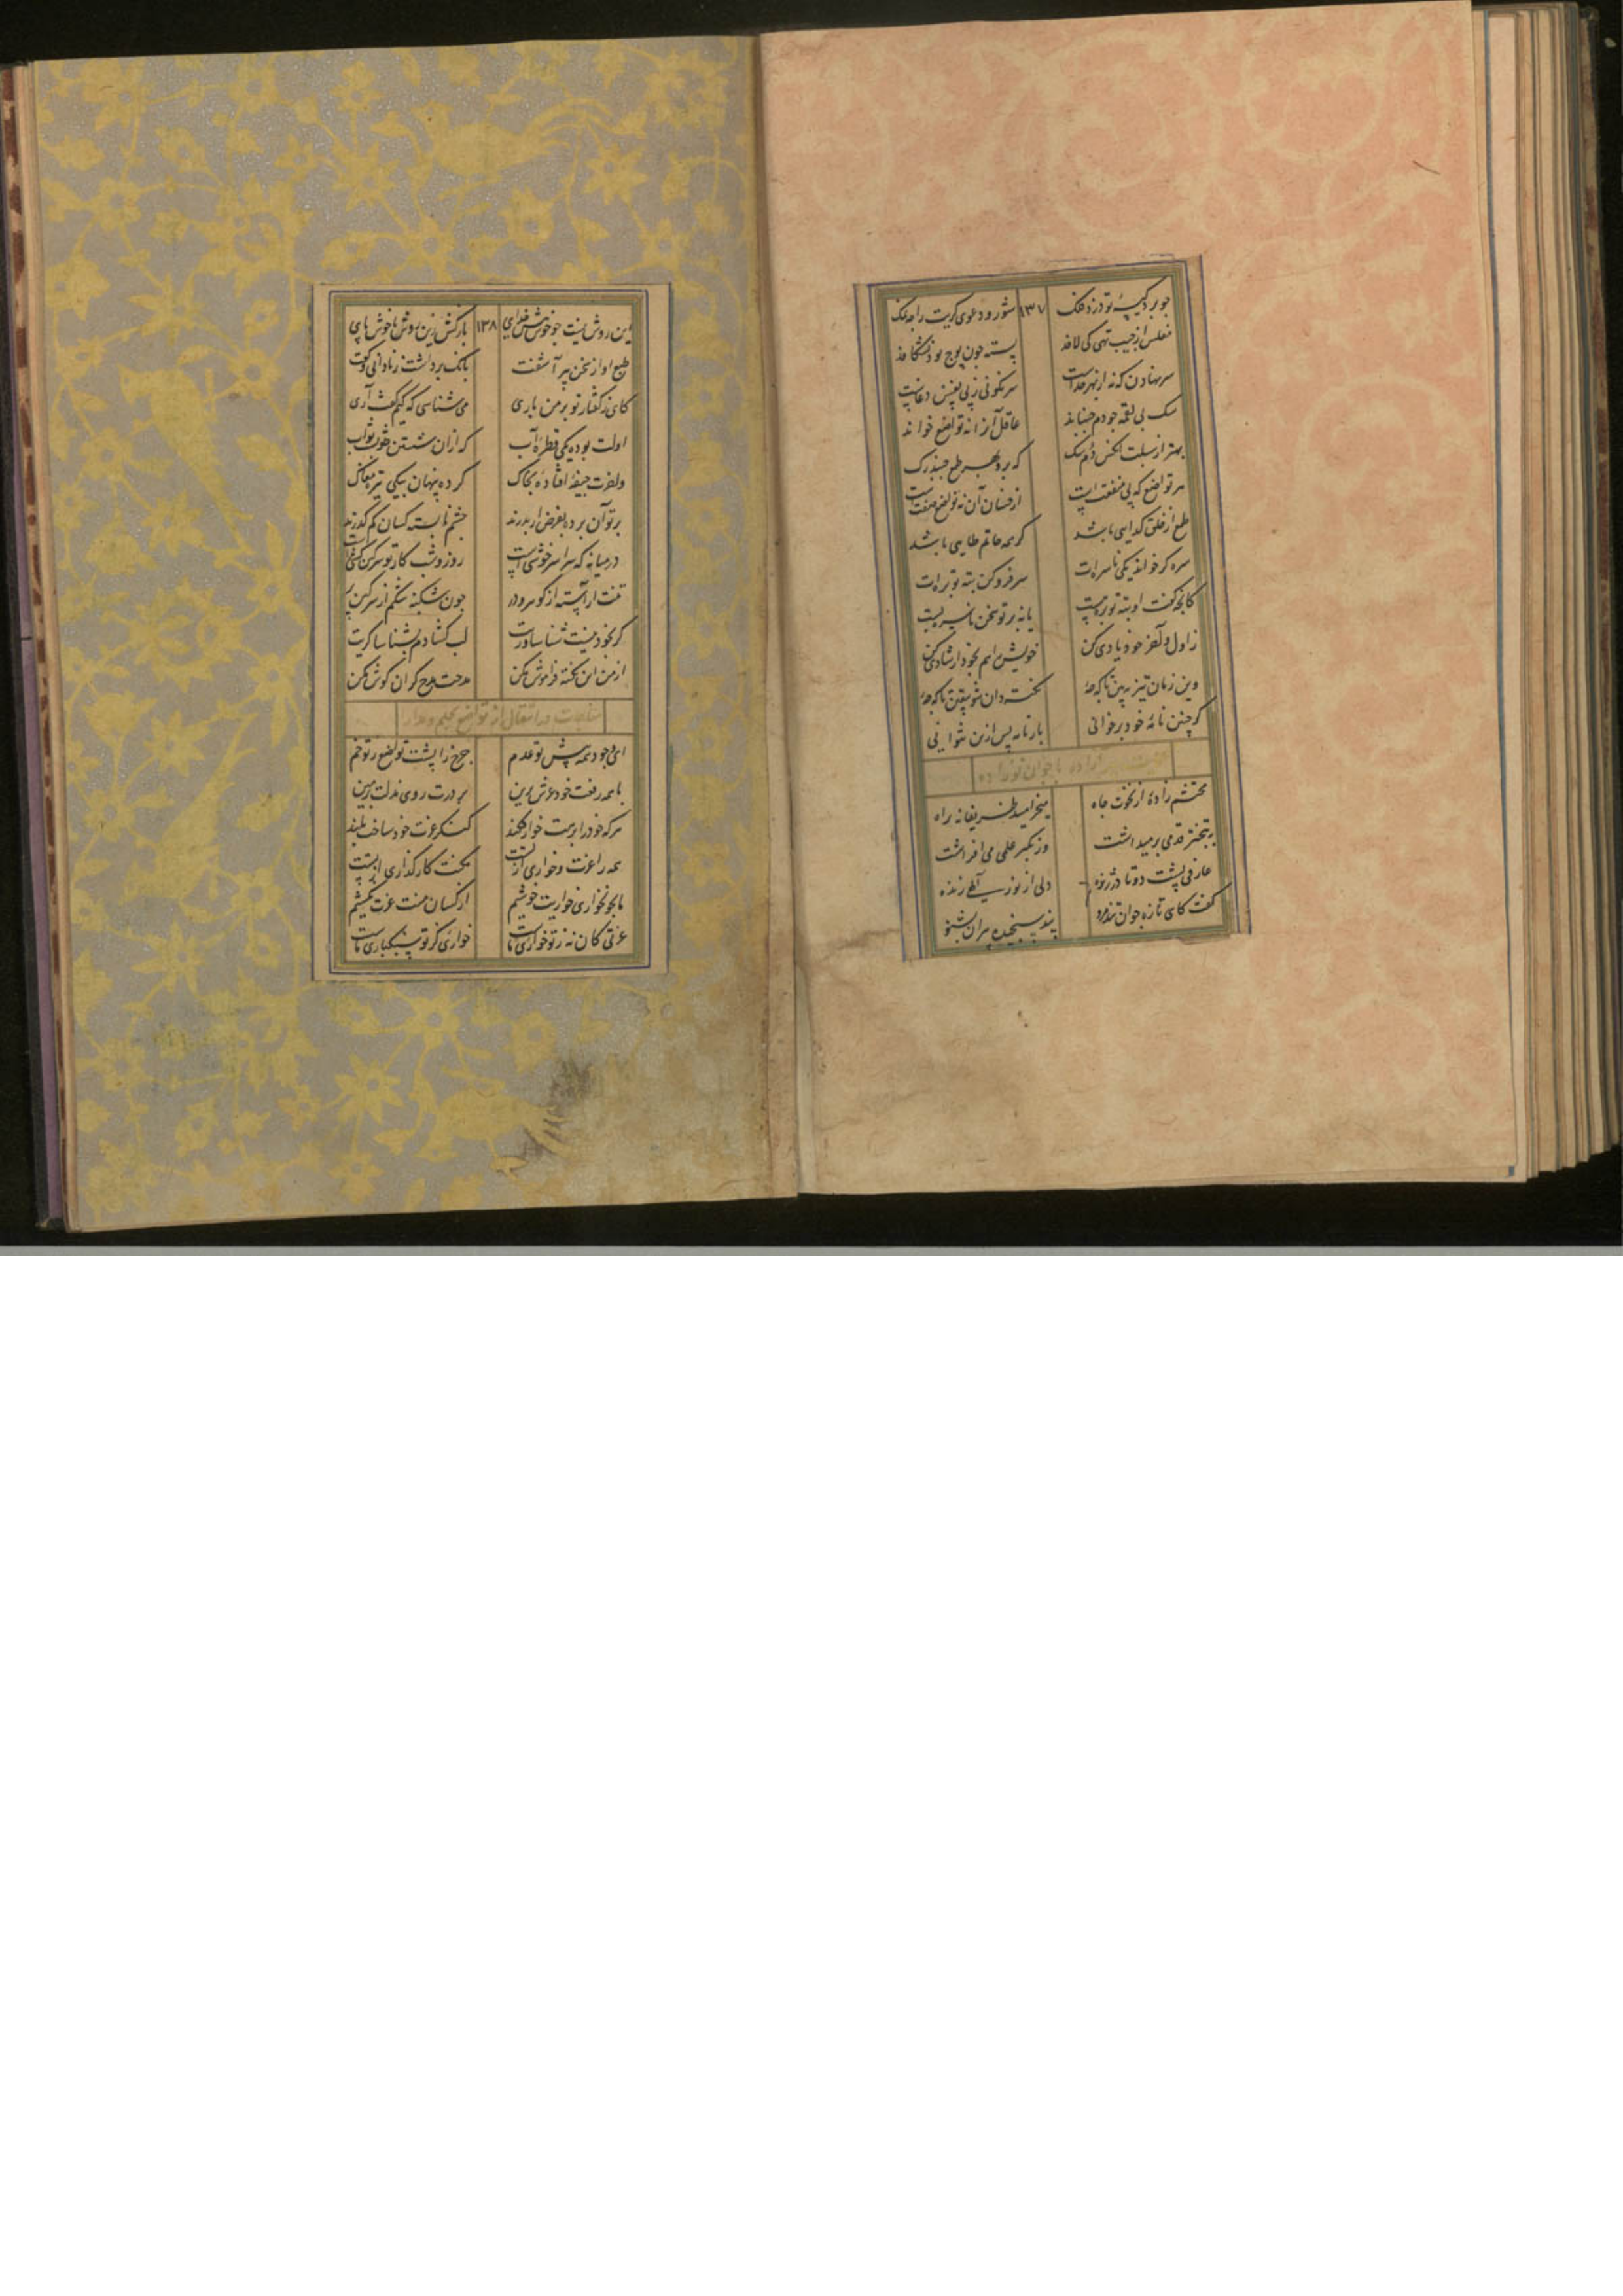 چو برد کیسهٔ تو دزد فنک ۱۳۷ شور و دعوی کریت راچه نمک
مفلس از جیب تهی کی لافد پسته چون پوچ بود نشکافد
سر نهادن که نه از بهر خداست سرنگونی ز پی نفس دغاست
سک بی لقمه چو دم جنباند عاقل آنرا نه تواضع خواند
بهتر از سبلت آنکس دم سک که برد بهر طمع
هر تواضع که پی منفعتست از خسان آن نه تواضع صفتست
طمع از خلق کدایی باشد کر همه حاتم طایی باشد
سره کر خواند یکی ناسره‌ات سر فرو کن بته توبره‌ات
کانچه کفت او بته توبره هست یا نه بر تو سخن ناسره بست
ز اول و آخر خود یادی کن خویش را هم بخود ارشادی کن
وین زمان نیز ببین تا که چهٔ نخست دان شو بیقین تا که چهٔ
کر چنین نامهٔ خود برخوانی باز نامه پس ازین نتوانی
پیر آزاده با جوان نوزاده
محتشم زادهٔ از نخوت جاه میخرامید ظریفانه براه
بتبختر قدمی برمیداشت وز تکبر علمی می افراشت
عارفی پشت دوتا در ژنده دلی از نور الهی زنده
کفت کای تازه جوان تند مرو پند سنجیده پیران بشنو
این روش نیست چو خوش خدای ۱۳۸ باز کش زین روش ناخوش پای
طبع او از سخن پیر آشفت بانک برداشت ز نادانی و کفت
کای ز کفتار تو بر من باری می شناسی که کیم کفت آری
اولت بوده یکی قطرهٔ آب که ازان شستن ثوب ثواب
واخرت جیفهٔ افتاده بخاک کرده پنهان یکی تیره مغاک
بر تو آن پرده بفرض ار بدرند چشم نابسته کسان کم کذرند
در میانه که سراسر خوشی است روز و شب کار تو سرکین کشی است
تنت آراسته از کوهر و در چون شکنبه شکم از سرکین پر
کر بخود نیست شناساوریت لب کشادم بشناساکریت
از من این نکته فراموش مکن مدحت مدح کران کوش مکن
مناجات در انتقال از تواضع بحلم و مدارا
ای وجود همه پیش تو عدم چرخ را پشت تواضع ز تو خم
با همه رفعت خود عرش برین بر درت روی مذلت بزمین
هر که خود را بدرت خوار فکند کنکر عزت خود ساخت بلند
همه را عزت و خواری از تست نکت کارکذاری از تست
ما بجو خواری خواریت خوشیم از کسان منت عزت نکشیم
عزتی کان نه ز تو خواری ماست خواری کز تو سبکباری ماست